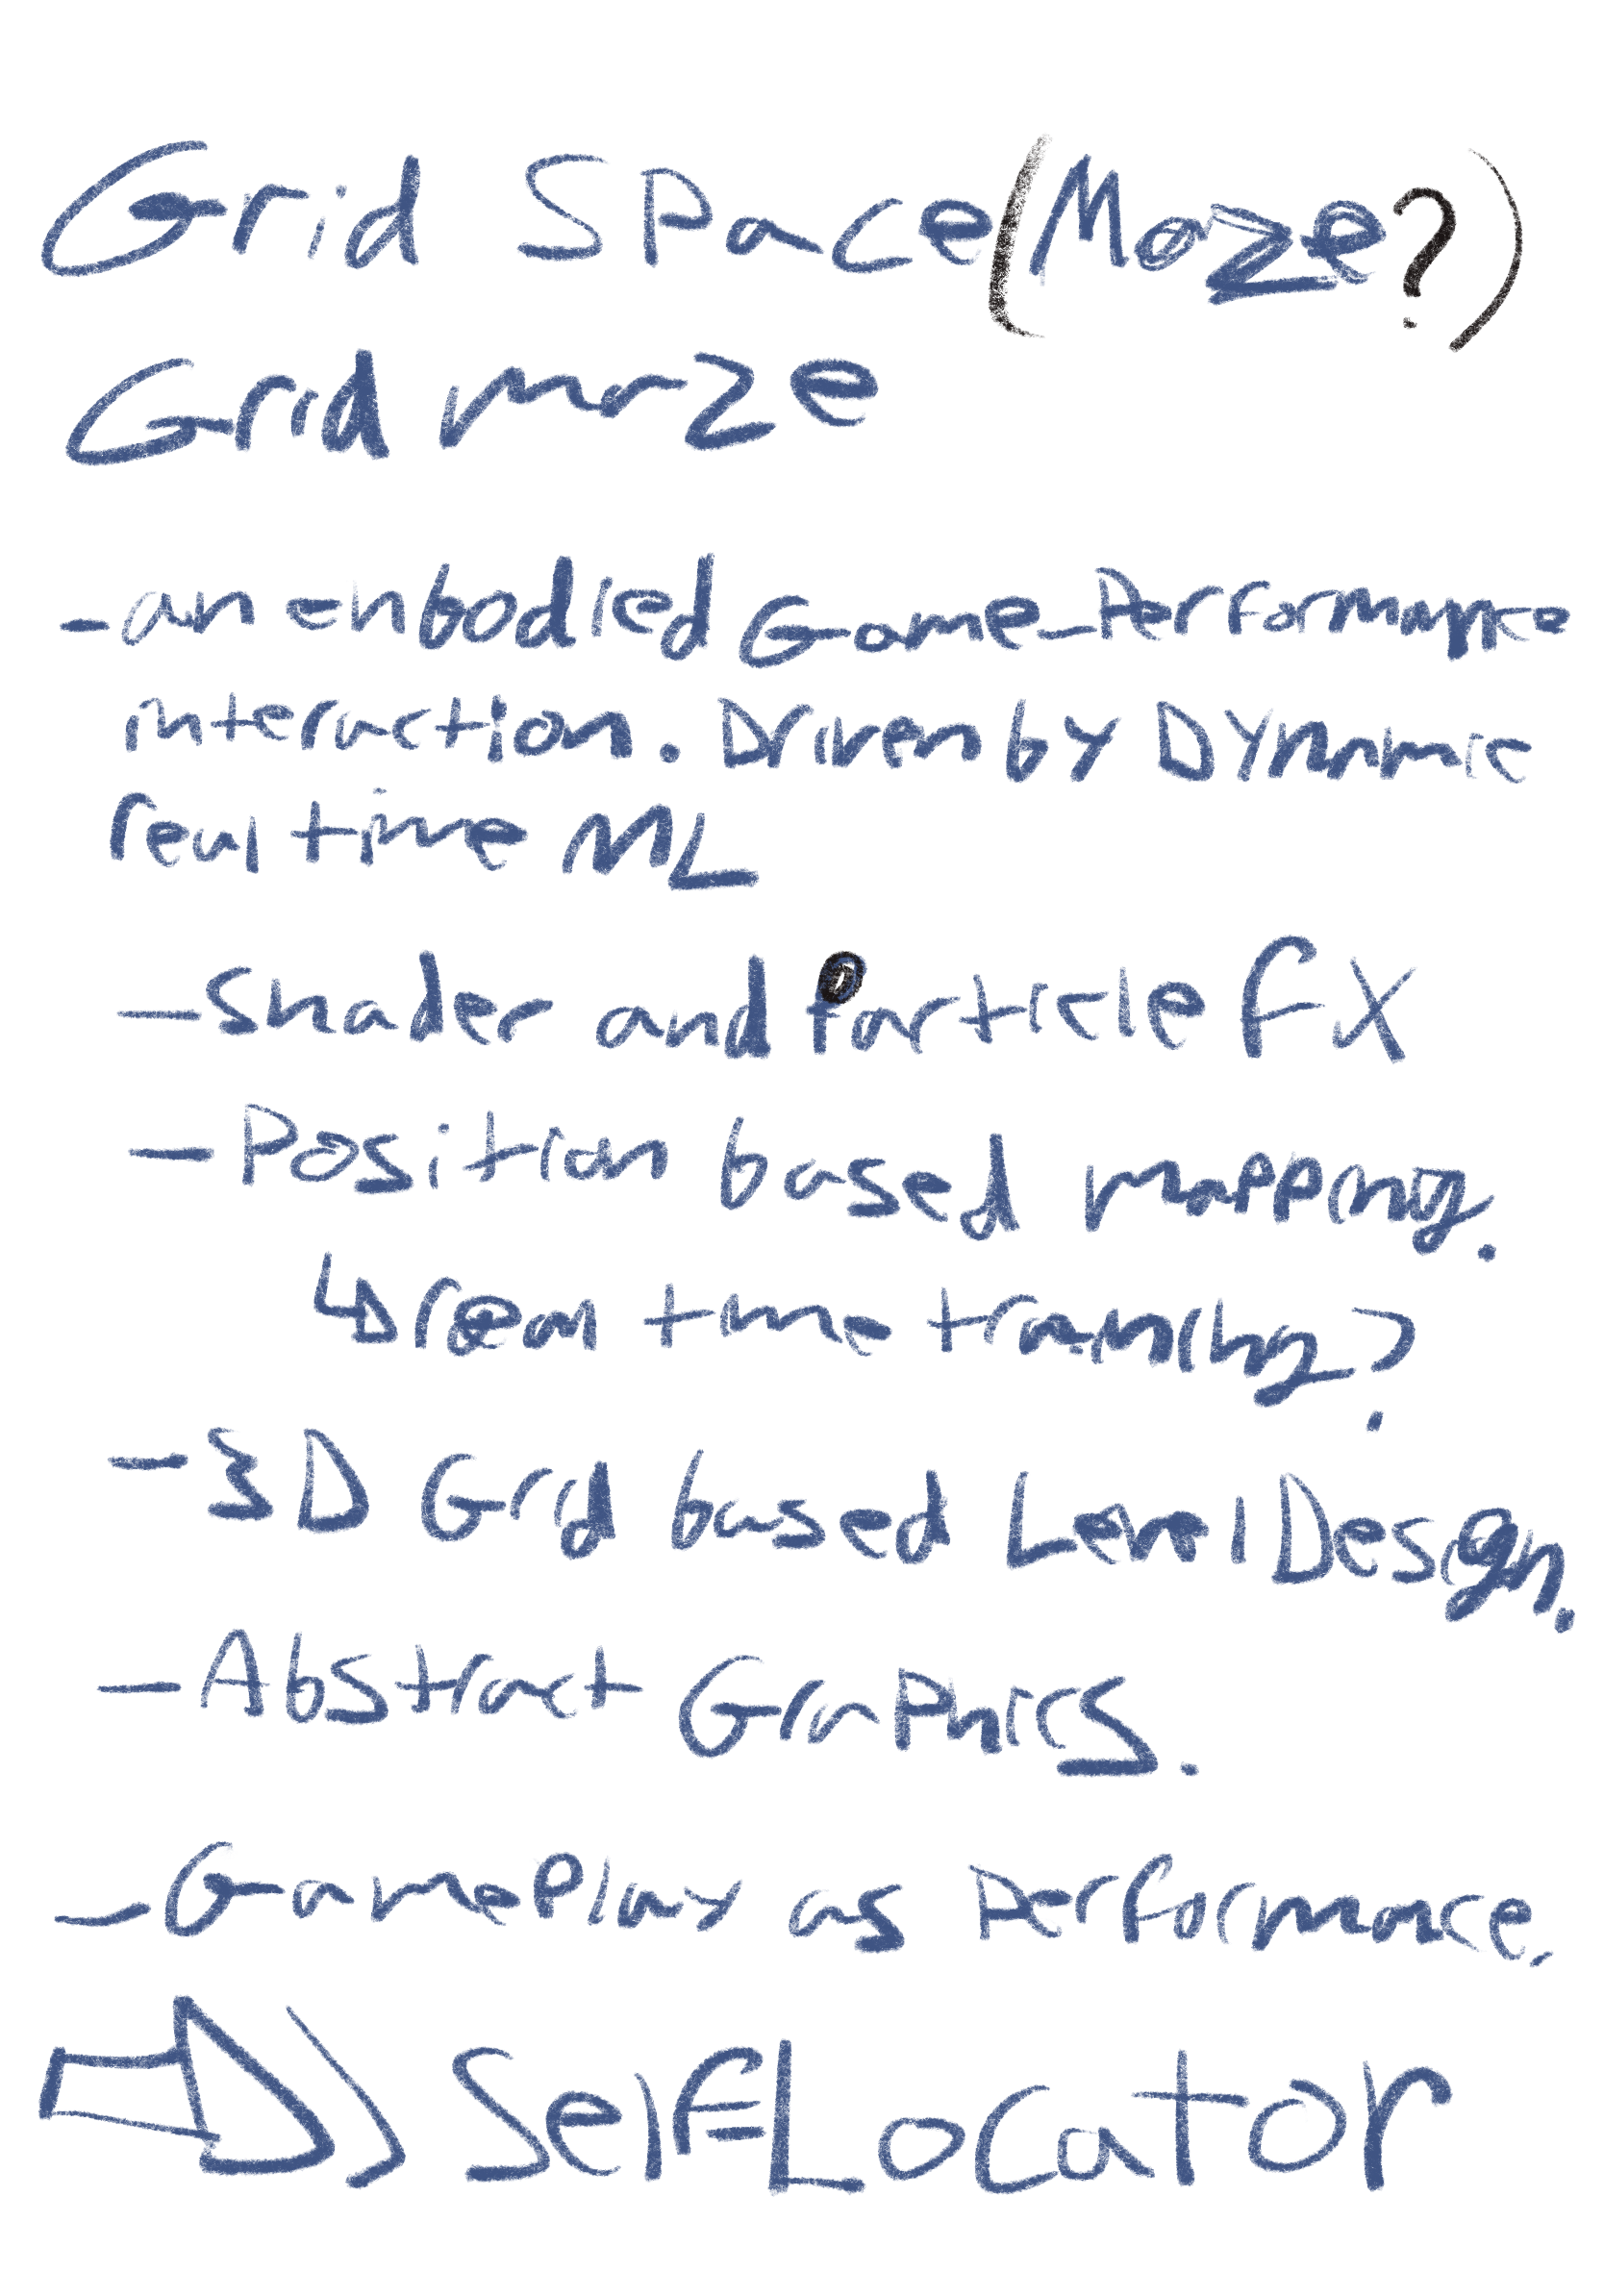 Grid Space (Maze?)
Grid maze
- an enbodied Game_Performance
interaction. Driven by Dynamic
real time ML
- Shader and Particle FX
- Position based mapping.
↳ real time training?
- 3D Grid based Level Design.
- Abstract Graphics.
- Gameplay as Performance.
⇒) Self-Locator